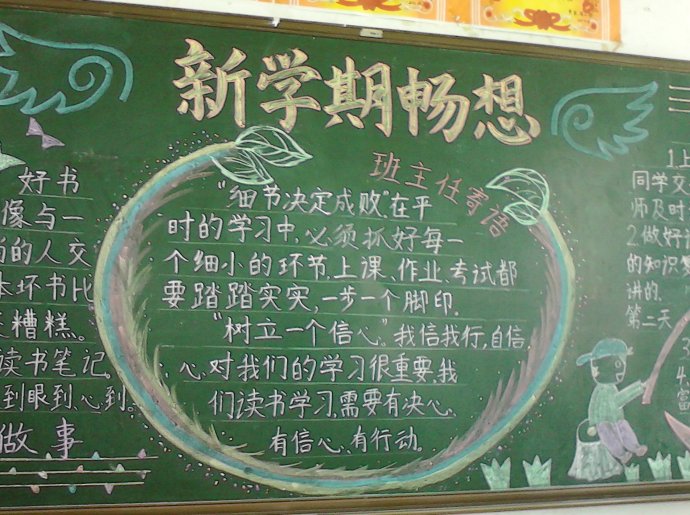 新学期畅想
好书
像与一
的人交
环书比
糟糕。
读书笔记
到眼到、心到。
做事
班主任寄语
“细节决定成败”。在平
时的学习中,必须抓好每一
个细小的环节,上课、作业、考试都
要踏踏实实,一步一个脚印.
“树立一个信心”。我信我行,自信
心对我们的学习很重要,我
们读书学习,需要有决心、
有信心、有行动。
1.上
同学交
师及时
2.做好
的知识
讲的.
第二天
3
4.